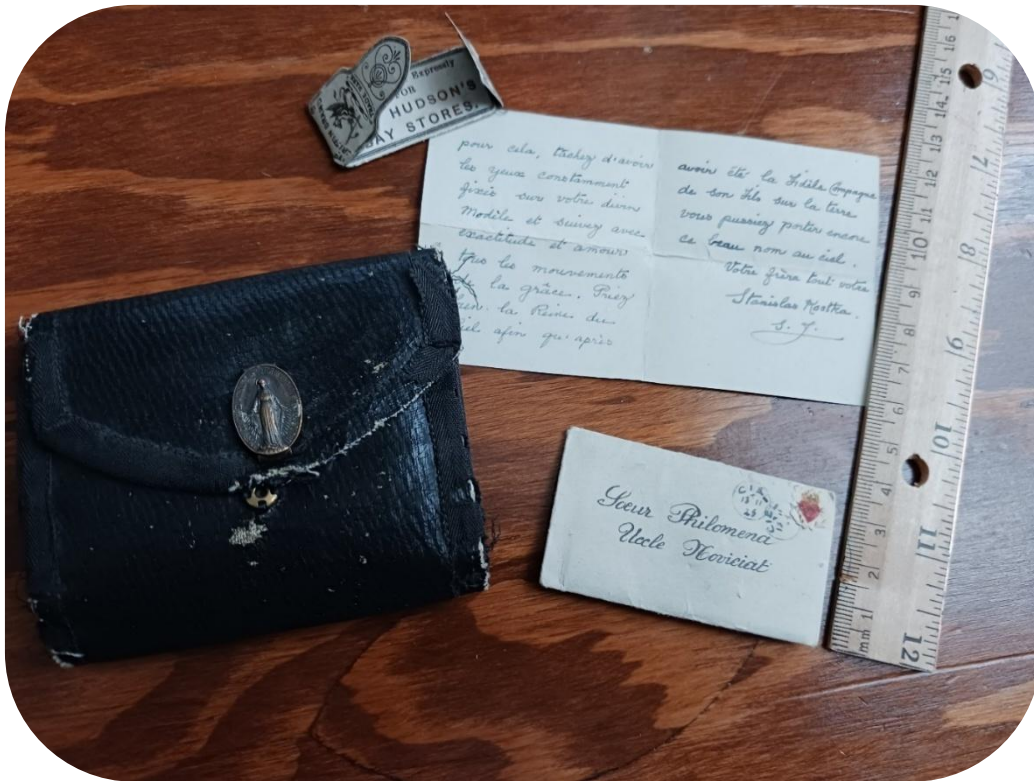 Expressly
FOR
HUDSON'S
BAY STORES.
pour cela, tâchez d'avoir
les yeux constamment
fixés sur votre divin
Modèle et suivez avec
exactitude et amour
tous les mouvements
de la grâce. Priez
la Reine du
ciel afin qu'après
avoir été la Fidèle Compagne
de son Fils sur la terre
vous puissiez porter encore
ce beau nom au ciel.
Votre frère tout votre
Stanislas Kostka.
S. J.
Soeur Philomena
Uccle Noviciat
mm 1 2 3 4 5 6 7 8 9 10 11 12 13 14 15 16
6 7 8 9 10 11 12